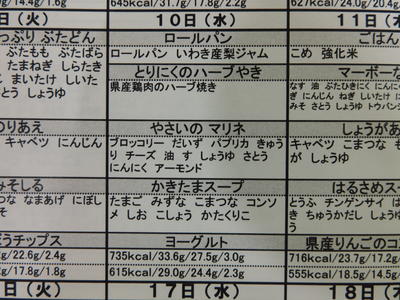 0g/14.4g/1.6g
645kcal/31.7g/17.8g/2.2g
627kcal/24.0g/20.4g
(火)
10日(水)
11日(木
っぷり ぶたどん
ぶたもも ぶたばら
たまねぎ しらたき
じ まいたけ しいた
とう しょうゆ
ロールパン
ロールパン いわき産梨ジャム
ごはん
こめ 強化米
とりにくのハーブやき
県産鶏肉のハーブ焼き
マーボーな
なす 油 ぶたひきにく にんにく
ぎ にんじん ねぎ しいたけ に
みそ さとう しょうゆ トウバンジ
のりあえ
キャベツ にんじん
やさいの マリネ
ブロッコリー だいず パプリカ きゅう
り チーズ 油 す しょうゆ さとう
にんにく アーモンド
しょうがあ
キャベツ こまつな も
が しょうゆ
みそしる
つな なまあげ にぼし
そ
かきたまスープ
たまご みずな こまつな コンソ
メ しお こしょう かたくりこ
はるさめスー
とうふ チンゲンサイ は
き ちゅうかだし しょう
う
ぼうチップス
g/22.6g/2.4g
g/17.8g/1.8g
ヨーグルト
735kcal/33.6g/27.5g/3.0g
615kcal/29.0g/24.4g/2.3g
県産りんごのコ
716kcal/23.7g/17.2g
555kcal/18.5g/14.5g
日(火)
17日(水)
18日(木